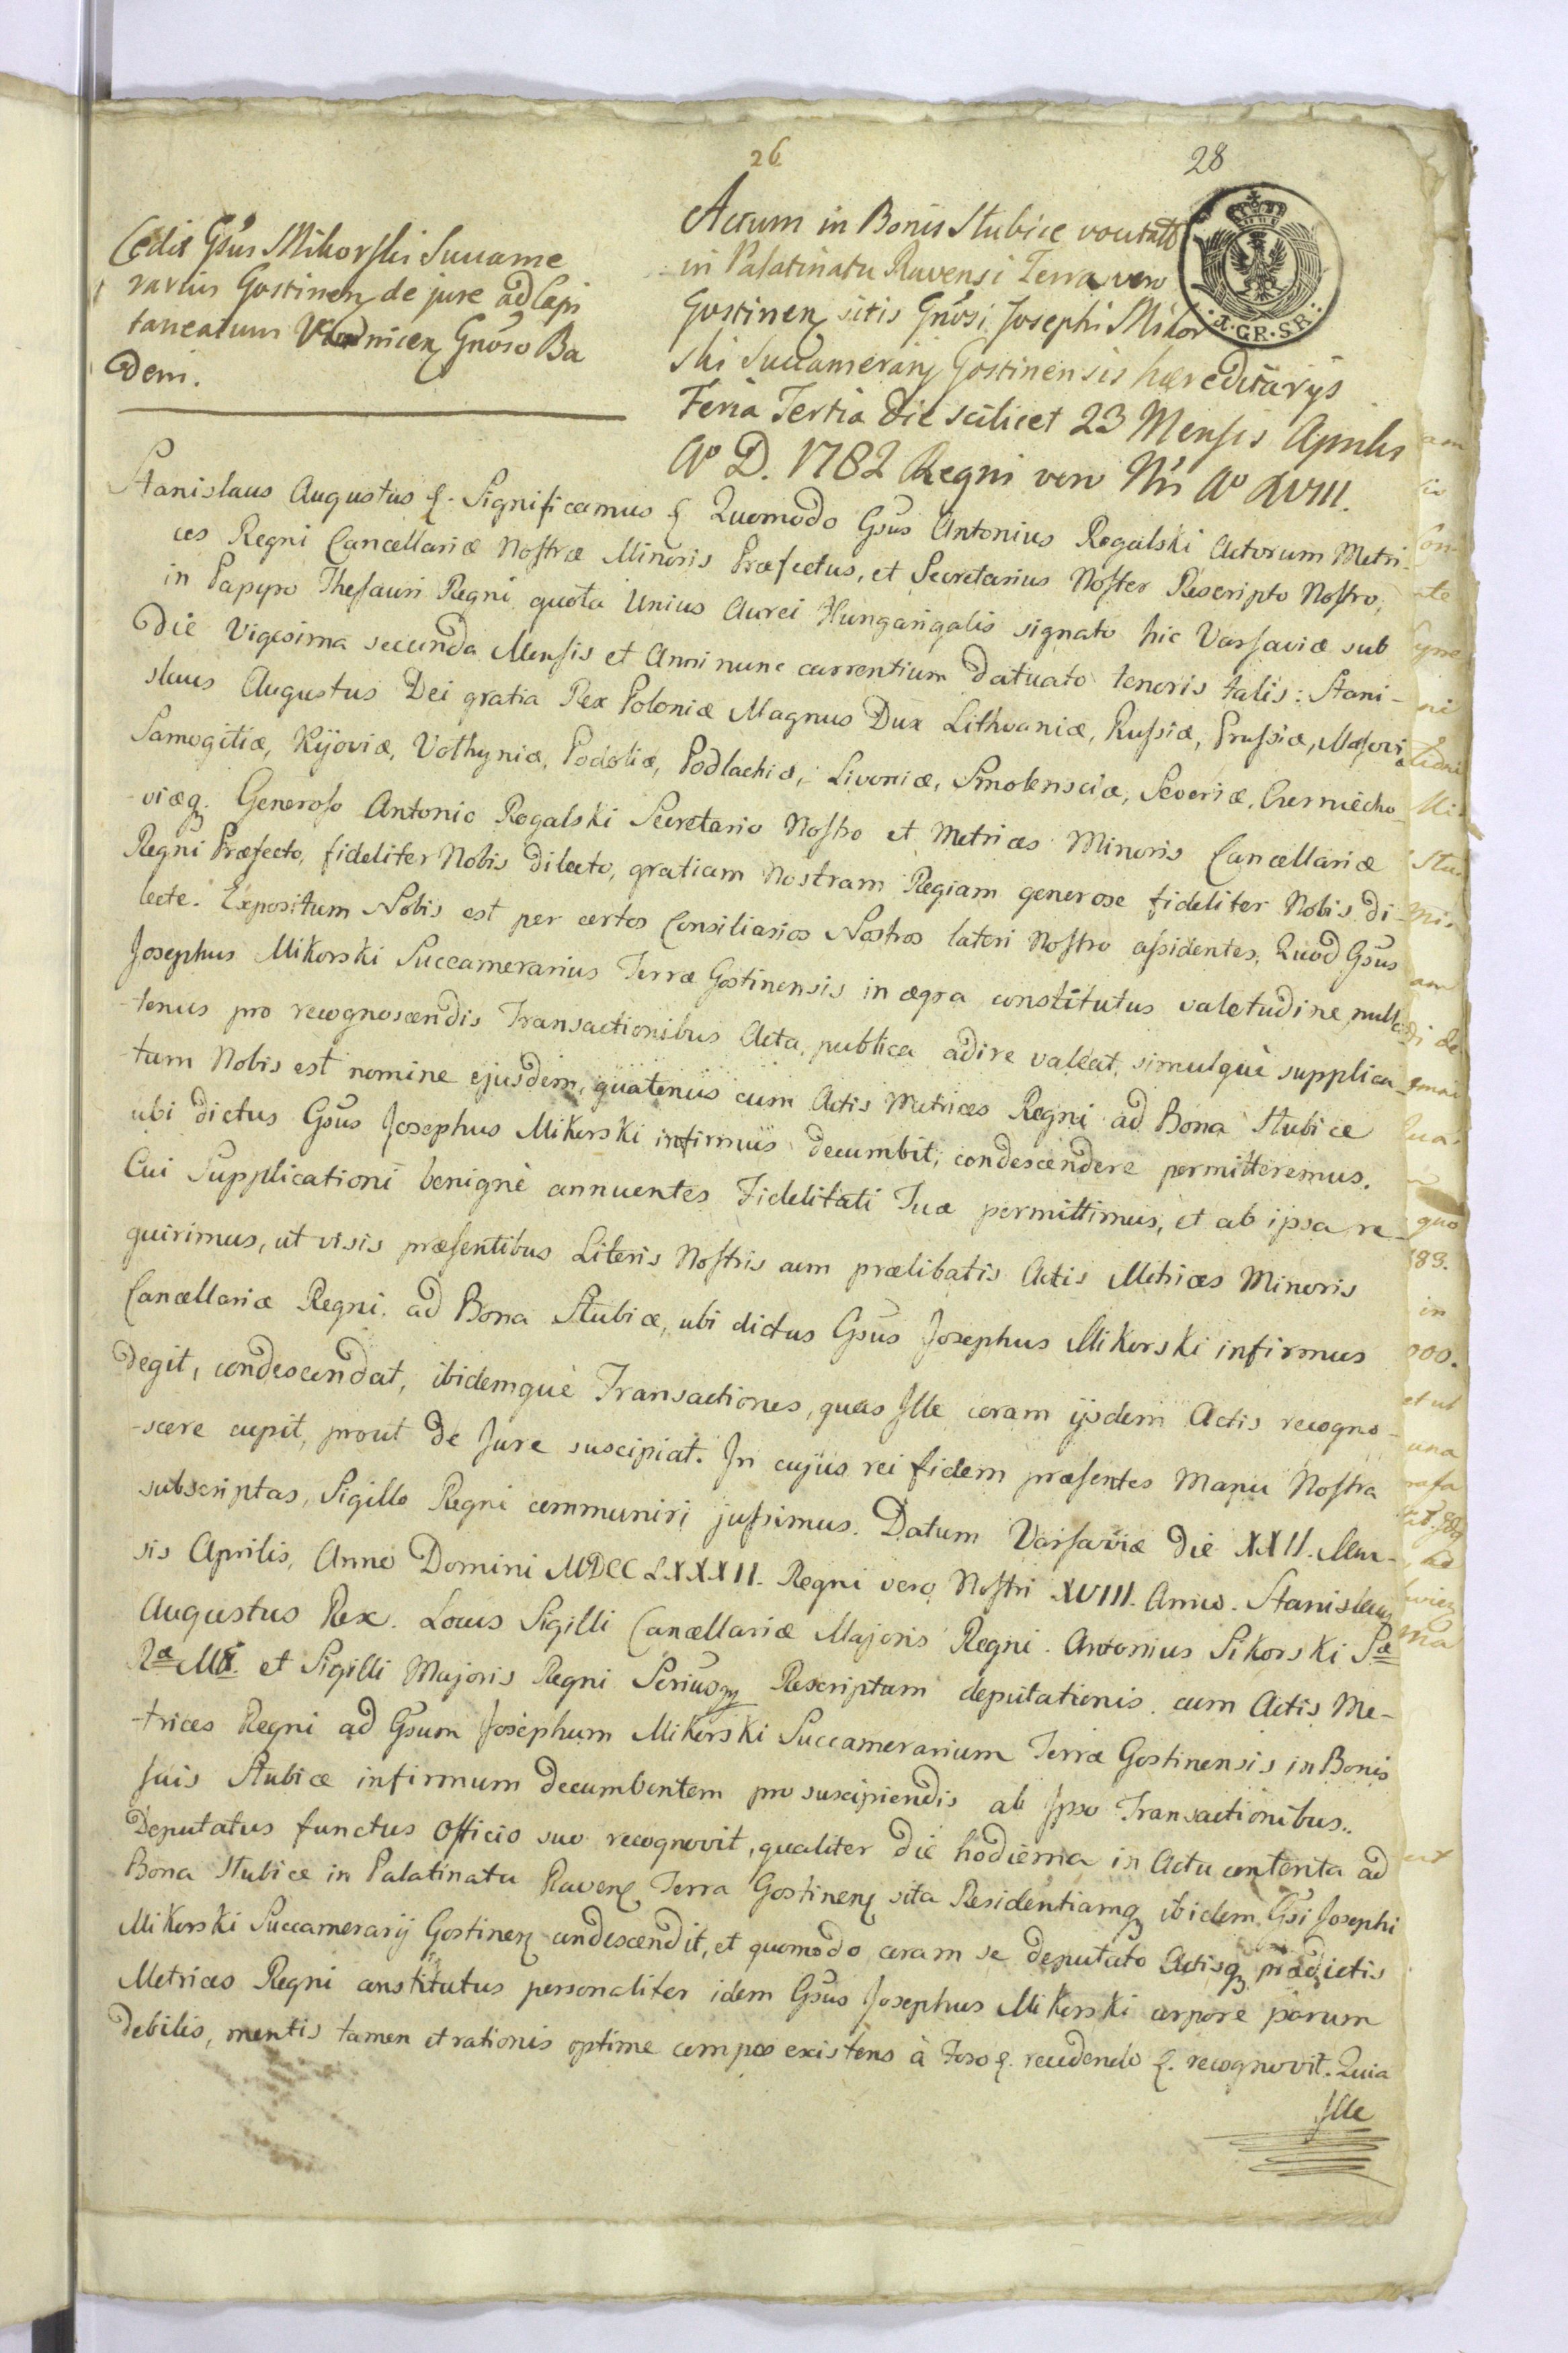 26
28
Cedit Gsus Mikorski Succame
rarius Gostinen de jure ad Capi
taneatum Gnoso Ba
deni.
Actum in Bonis Stubice vocitatis
in Palatinatu Ravensi Terra vero
Gostinen sitis Gnosi Josephi Mikor
ski Succamerarij Gostinensis hæreditarijs
Feria Tertia die scilicet 23 Mensis Aprilis
Aº D. 1782 Regni vero Nri Aº XVIII.
A. GR. SR.
Stanislaus Augustus &. Significamus & Quomodo Gsus Antonius Rogalski Actorum Metri-
ces Regni Cancellariæ Nostræ Minoris Præfectus, et Secretarius Noster Rescripto Nostro,
in Papyro Thesauri Regni quota Unius Aurei Hungarigalis signato hic Varsaviæ sub
die Vigesima secunda Mensis et Anni nunc currentium datuato tenoris talis: Stani-
slaus Augustus Dei gratia Rex Poloniæ Magnus Dux Lithvaniæ, Russiæ, Prussiæ, Masoviæ
Samogitiæ, Kijoviæ, Volhyniæ, Podoliæ, Podlachiæ, Livoniæ, Smolensciæ, Severiæ, Czerniecho-
-viæq. Generoso Antonio Rogalski Secretario Nostro et Metrices Minoris Cancellariæ
Regni Præfecto, fideliter Nobis dilecto, gratiam Nostram Regiam generose fideliter Nobis di-
lecte. Expositum Nobis est per certos Consiliarios Nostros lateri Nostro assidentes, Quod Gsus
Josephus Mikorski Succamerarius Terræ Gostinensis in ægra constitutus valetudine, nulla
-tenus pro recognoscendis Transactionibus Acta publica adire valeat, simulquè supplica-
-tum Nobis est nomine ejusdem, quatenus cum Actis Metrices Regni ad Bona Stubice
ubi dictus Gsus Josephus Mikorski infirmus decumbit, condescendere permitteremus.
Cui Supplicationi benignè annuentes Fidelitati Tuæ permittimus, et ab ipsa re-
quirimus, ut visis præsentibus Literis Nostris cum prælibatis Actis Metrices Minoris
Cancellariæ Regni ad Bona Stubice, ubi dictus Gsus Josephus Mikorski infirmus
degit, condescendat, ibidemquè Transactiones, quas Ille coram ijsdem Actis recogno-
-scere cupit, prout de Jure suscipiat. In cujus rei fidem præsentes Manu Nostra
subscriptas, Sigillo Regni communiri jussimus. Datum Varsaviæ die XXII. Men-
sis Aprilis, Anno Domini MDCCLXXXII. Regni vero Nostri XVIII. Anno. Stanislaus
Augustus Rex. Locus Sigilli Cancellariæ Majoris Regni. Antonius Sikorski Sæ
Ræ Mtis. et Sigilli Majoris Regni Rescriptum deputationis cum Actis Me-
-trices Regni ad Gsum Josephum Mikorski Succamerarium Terræ Gostinensis in Bonis
suis Stubice infirmum decumbentem pro suscipiendis ab Ipso Transactionibus..
Deputatus functus Officio suo recognovit, qualiter die hodierna in Actu contenta ad
Bona Stubice in Palatinatu Raven Terra Gostinen sita Residentiamq ibidem Gsi Josephi
Mikorski Succamerarij Gostinen condescendit, et quomodo coram se deputato Actisq prædictis
Metrices Regni constitutus personaliter idem Gsus Josephus Mikorski corpore parum
debilis, mentis tamen et rationis optime compos existens à Foro &. recedendo &. recognovit. Quia
Ille